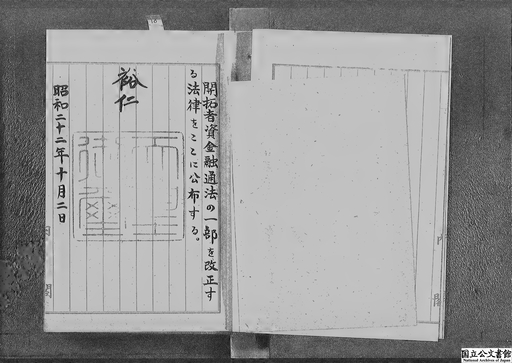 開拓者資金融通法の一部を改正す
る法律をここに公布する。
裕仁
天皇御璽
昭和二十二年十月二日
内閣
内閣
国立公文書館
National Archives of Japan